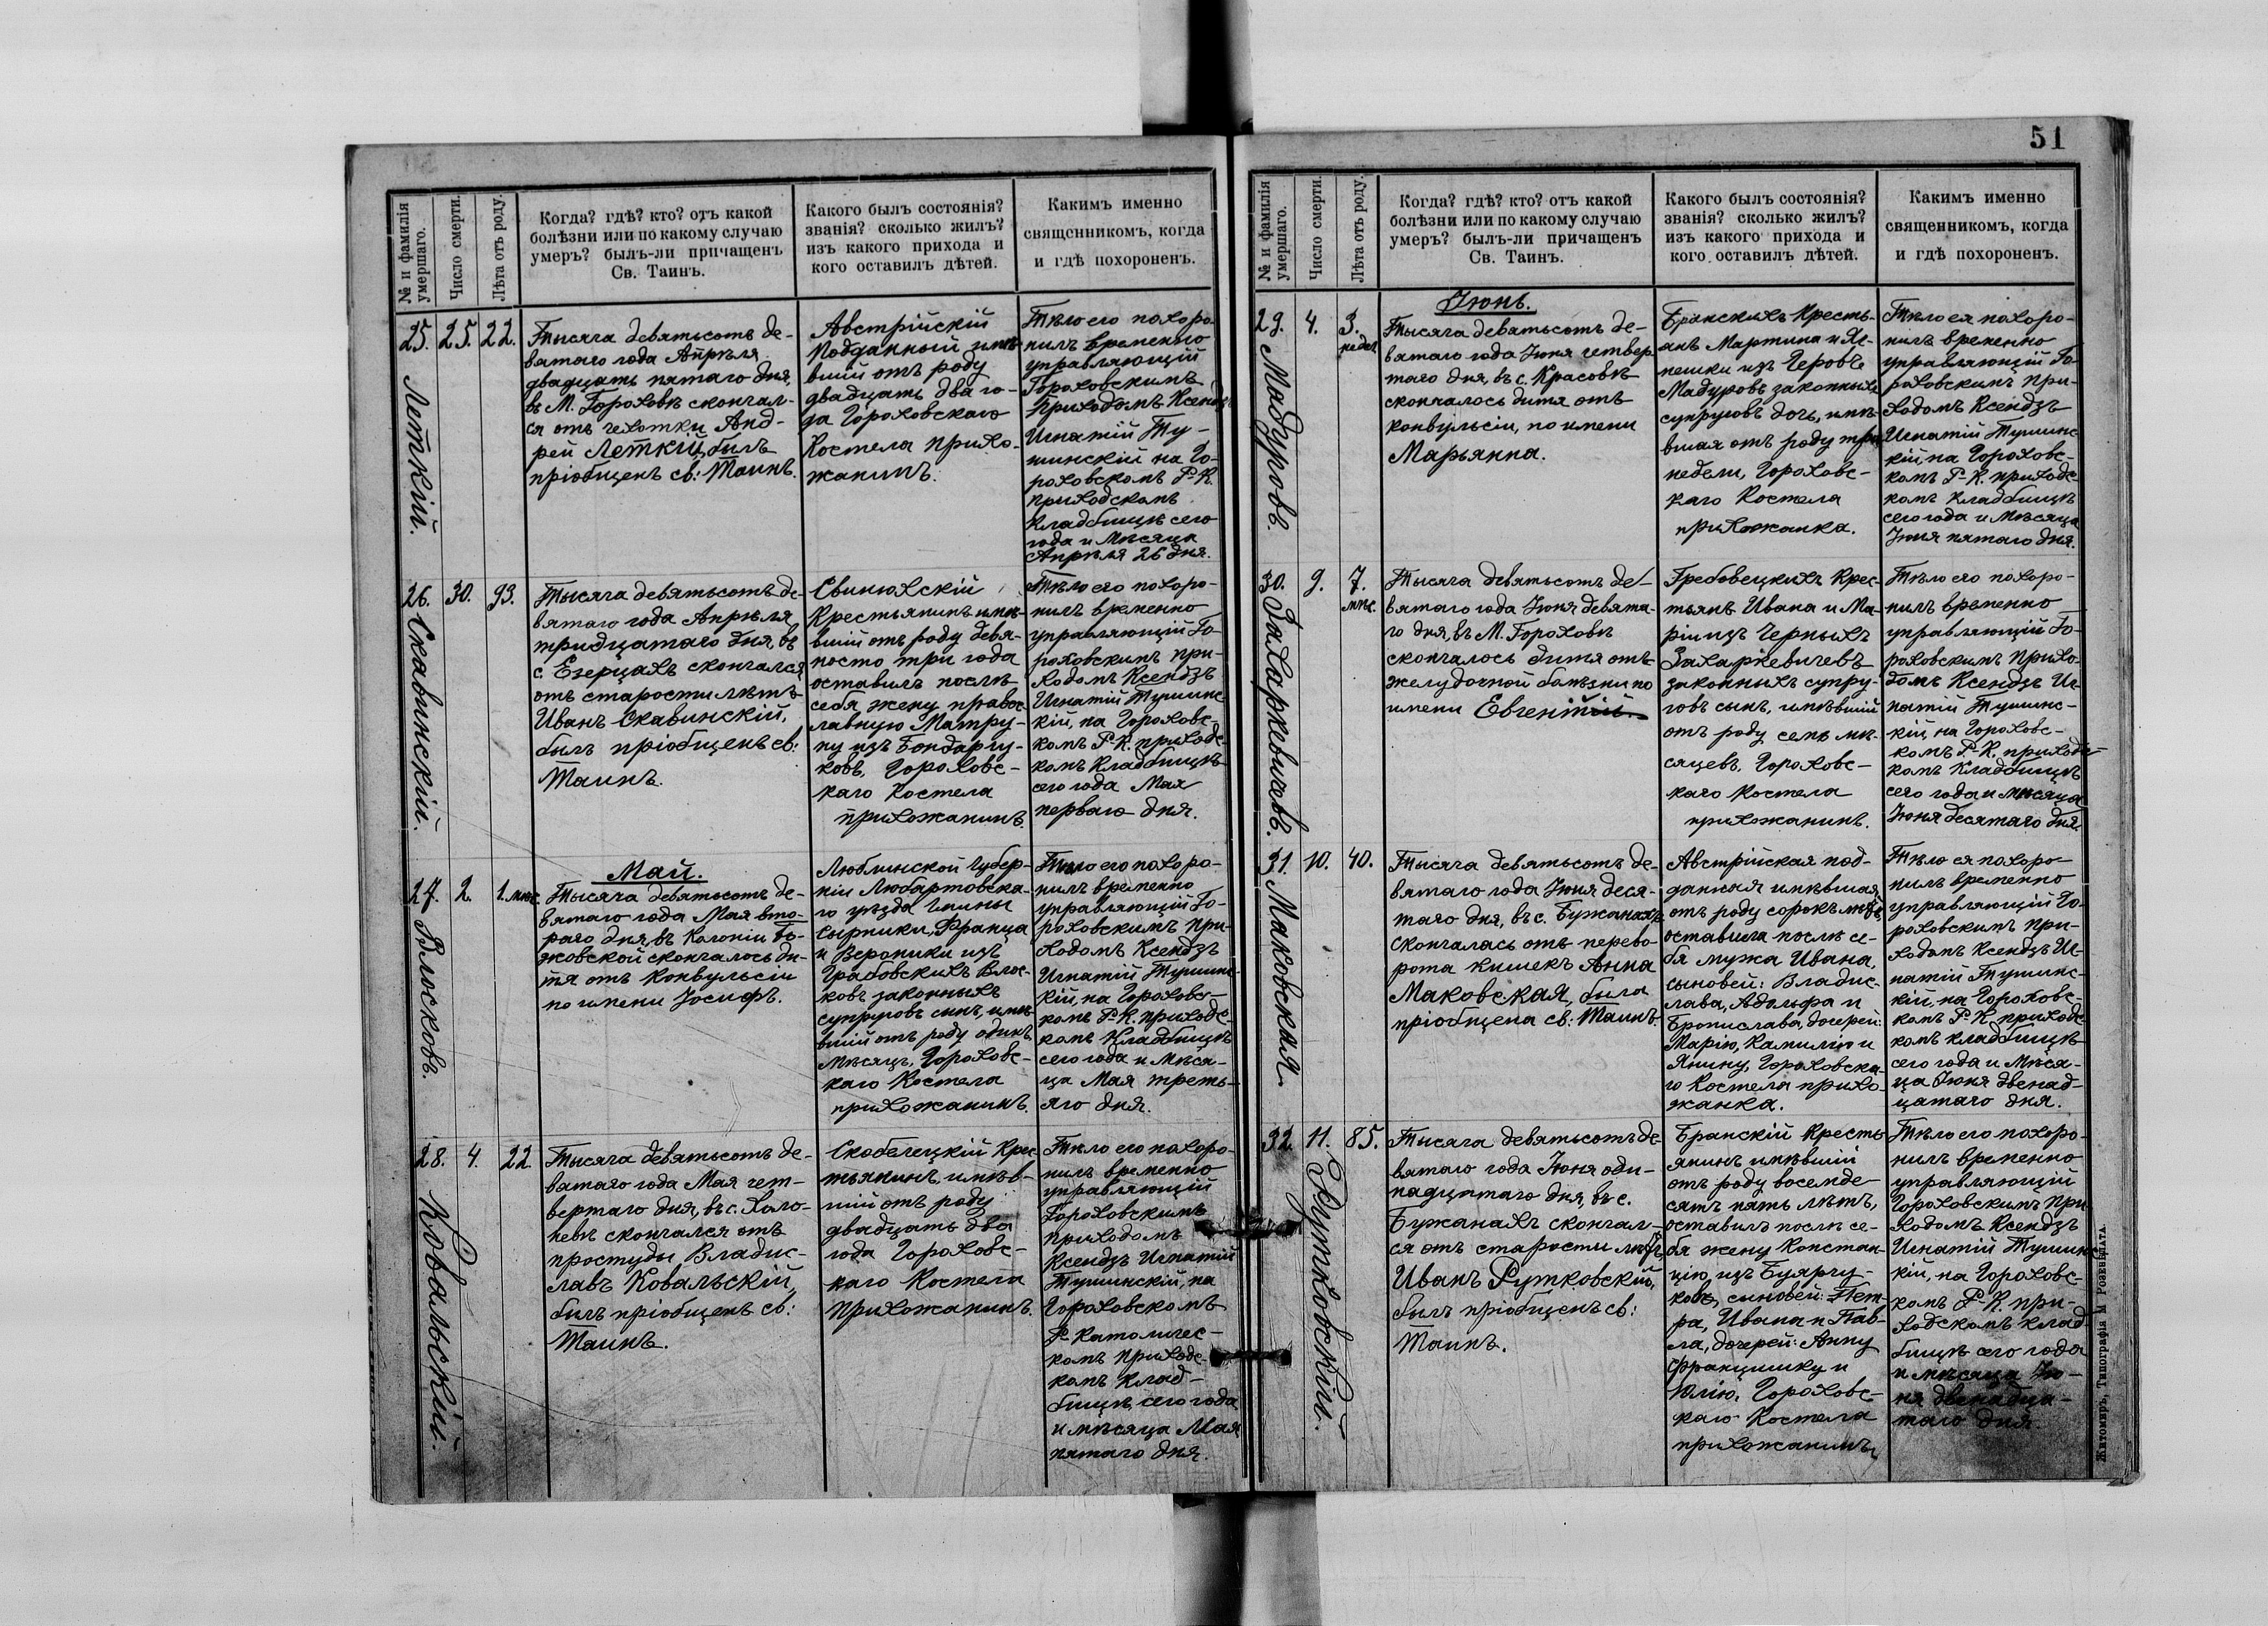 № и фамилія
умершаго.
Число смерти.
Лѣта отъ роду.
Когда? гдѣ? кто? отъ какой
болѣзни или по какому случаю
умеръ? былъ-ли причащенъ
Св. Таинъ.
Какого былъ состоянія?
званія? сколько жилъ?
изъ какого прихода и
кого оставилъ дѣтей.
Какимъ именно
священникомъ, когда
и гдѣ похороненъ.
25.
Леткій.
25.
22.
Тысяча девятьсотъ де-
вятаго года Апрѣля
двадцать пятаго дня,
въ М. Гороховѣ скончал-
ся отъ чехотки Анд-
рей Леткій, былъ
пріобщенъ св: Таинъ.
Австрійскій
подданный имѣ-
вшій отъ роду
двадцать два го-
да Гороховскаго
Костела прихо-
жанинъ.
Тѣло его похоро-
нилъ временно
управляющій
Гороховскимъ
Приходомъ Ксендзъ
Игнатій Ту-
шинскій на Го-
роховскомъ Р-К.
приходскомъ
кладбищѣ сего
года и Мѣсяца
Апрѣля 26 дня.
26.
Скавинскій.
30.
93.
Тысяча девятьсотъ де-
вятаго года Апрѣля
тридцатаго дня, въ
с. Езерцахъ скончался
отъ старости лѣтъ
Иванъ Скавинскій,
былъ пріобщенъ св:
Таинъ.
Свинюхскій
Крестьянинъ имѣ-
вшій отъ роду девя-
носто три года
оставилъ послѣ
себя жену правос-
лавную Матру-
ну изъ Бондарчу-
ковъ, Гороховс-
каго Костела
прихожанинъ.
Тѣло его похоро-
нилъ временно
управляющій Го-
роховскимъ при-
ходомъ Ксендзъ
Игнатій Тушинс-
кій, на Гороховс-
комъ Р-К. приходс-
комъ кладбищѣ
сего года Мая
перваго дня.
27.
Влосковъ.
2.
1. мѣс.
Май.
Тысяча девятьсотъ де-
вятаго года Мая вто-
раго дня, въ колоніи
скончалось ди-
тя отъ конвульсіи
по имени Іосифъ.
Люблинской Губер-
ніи Любартовска-
го уѣзда Гмины
Сырники, Франца
и Вероники изъ
Грабовскихъ Влос-
ковъ законныхъ
супруговъ сынъ, имѣ-
вшій отъ роду одинъ
Мѣсяцъ, Гороховс-
каго Костела
прихожанинъ.
Тѣло его похоро-
нилъ временно
управляющій Го-
роховскимъ при-
ходомъ Ксендзъ
Игнатій Тушинс-
кій, на Гороховс-
комъ Р-К. приходс-
комъ кладбищѣ
сего года и мѣся-
ца Мая треть-
яго дня.
28.
Ковальскій.
4.
22
Тысяча девятьсотъ де-
вятаго года Мая чет-
вертаго дня, въ с. Холо-
невѣ скончался отъ
простуды Владис-
лавъ Ковальскій,
былъ пріобщенъ св:
Таинъ.
Скобелецкій Крес-
тьянинъ, имѣв-
шій отъ роду
двадцать два
года Гороховс-
каго Костела
прихожанинъ.
Тѣло его похоро-
нилъ временно
управляющій
Гороховскимъ
приходомъ
Ксендзъ Игнатій
Тушинскій, на
Гороховскомъ
Р-католичес-
комъ приходс-
комъ клад-
бищѣ, сего года
и мѣсяца Мая
пятаго дня.
51
№ и фамилія
умершаго.
Число смерти.
Лѣта отъ роду.
Когда? гдѣ? кто? отъ какой
болѣзни или по какому случаю
умеръ? былъ-ли причащенъ
Св. Таинъ.
Какого былъ состоянія?
званія? сколько жилъ?
изъ какого прихода и
кого оставилъ дѣтей.
Какимъ именно
священникомъ, когда
и гдѣ похороненъ.
29.
Мадуровъ.
4.
3.
недѣл.
Іюнь.
Тысяча девятьсотъ де-
вятаго года Іюня четвер-
таго дня, въ с. Красовѣ
скончалось дитя отъ
конвульсіи, по имени
Марьянна.
Бранскихъ Кресть-
янъ Мартина и Яг-
нешки изъ Геровъ
Мадуровъ законныхъ
супруговъ дочь, имѣ-
вшая отъ роду три
недѣли, Гороховс-
каго Костела
прихожанка.
Тѣло ея похоро-
нилъ временно
управляющій Го-
роховскимъ при-
ходомъ Ксендзъ
Игнатій Тушинс-
кій, на Гороховс-
комъ Р-К. приходс-
комъ кладбищѣ
сего года и Мѣсяца
Іюня пятаго дня.
30.
Захаркевичевъ.
9.
7.
мѣс.
Тысяча девятьсотъ де-
вятаго года Іюня девята-
го дня, въ М. Гороховѣ
скончалось дитя отъ
желудочной болѣзни по
имени Евгеній.
Гребовецкихъ Крес-
тьянъ Ивана и Ма-
ріи изъ Черныхъ
Захаркевичевъ
законныхъ супру-
говъ сынъ, имѣвшій
отъ роду семь мѣ-
сяцевъ, Гороховс-
каго Костела
прихожанинъ.
Тѣло его похоро-
нилъ временно
управляющій Го-
роховскимъ прихо-
домъ Ксендзъ Иг-
натій Тушинс-
кій, на Гороховс-
комъ Р-К. приходс-
комъ кладбищѣ
сего года и мѣсяца
Іюня десятаго дня.
31.
Маковская.
10.
40.
Тысяча девятьсотъ де-
вятаго года Іюня деся-
таго дня, въ с. Бужанахъ
скончалась отъ перево-
рота кишекъ Анна
Маковская, была
пріобщена св: Таинъ.
Австрійская под-
данная имѣвшая
отъ роду сорокъ лѣтъ,
оставила послѣ се-
бя мужа Ивана,
сыновей: Владис-
лава, Адольфа и
Бронислава, дочерей:
Марію, Камилію и
Янину, Гороховска-
го Костела прихо-
жанка.
Тѣло ея похоро-
нилъ временно
управляющій Го-
роховскимъ при-
ходомъ Ксендзъ Иг-
натій Тушинс-
кій, на Гороховс-
комъ Р-К. приходс-
комъ кладбищѣ
сего года и Мѣся-
ца Іюня двенад-
цатаго дня.
32.
Рутковскій.
11.
85.
Тысяча девятьсотъ де-
вятаго года Іюня оди-
надцатаго дня, въ с.
Бужанахъ скончал-
ся отъ старости лѣтъ
Иванъ Рутковскій,
былъ пріобщенъ св:
Таинъ.
Бранскій Кресть-
янинъ имѣвшій
отъ роду восемде-
сятъ пять лѣтъ,
оставилъ послѣ се-
бя жену Констан-
цію, изъ Буярчу-
ковъ, сыновей: Пет-
ра, Ивана и Пав-
ла, дочерей: Анну
Францишку и
Юлію, Гороховс-
каго Костела
прихожанинъ
Тѣло его похоро-
нилъ временно
управляющій
Гороховскимъ При-
ходомъ Ксендзъ
Игнатій Тушинс-
кій, на Гороховс-
комъ Р-К. при-
ходскомъ клад-
бищѣ сего года
и мѣсяца Ію-
ня двенадца-
таго дня.
Житомиръ, Типографія М Розенблата